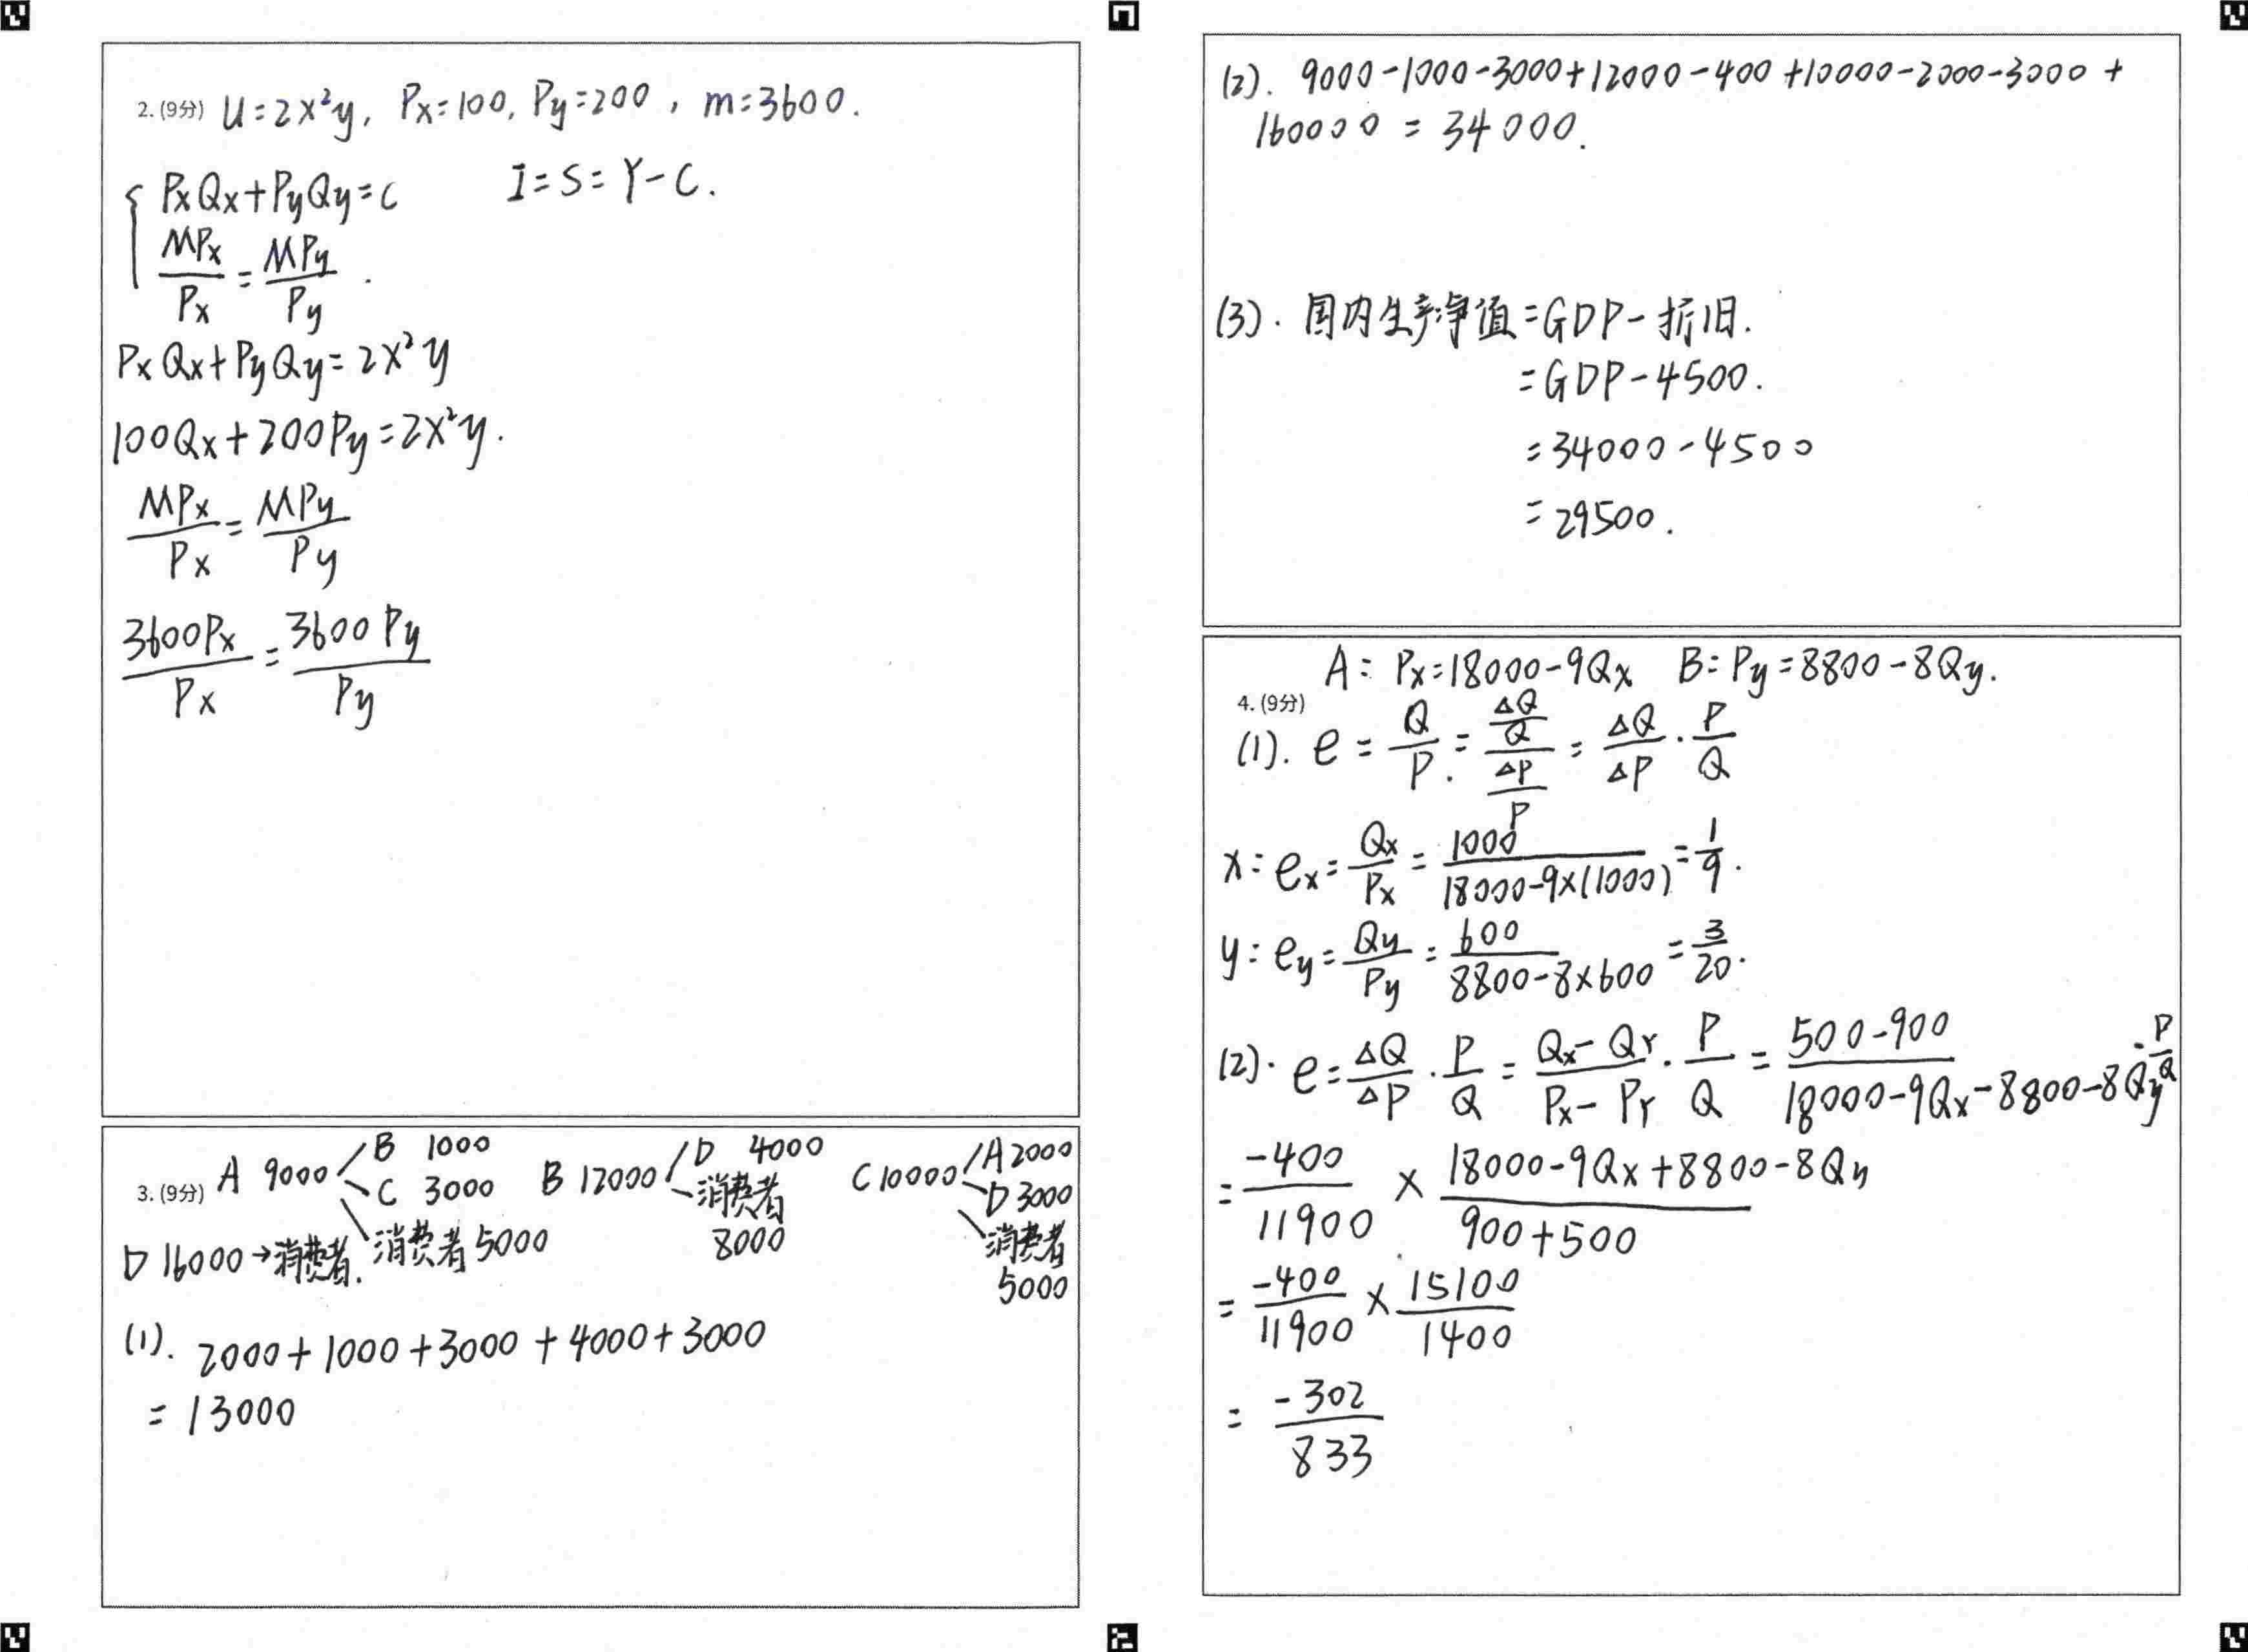 2. (9分) U=2x²y, Px=100, Py=200, m=3600.
{ PxQx+PyQy=C I=S=Y-C.
MPx/Px = MPy/Py.
PxQx+PyQy=2x²y
100Qx+200Py=2x²y.
MPx/Px = MPy/Py
3600Px/Px = 3600Py/Py
3. (9分) A 9000 B 1000 C 3000 消费者 5000
B 12000 D 4000 消费者 8000
C 10000 A 2000 D 3000 消费者 5000
D 16000→消费者.
(1). 2000+1000+3000+4000+3000
=13000
(2). 9000-1000-3000+12000-400+10000-2000-3000+
160000=34000.
(3). 国内生产净值=GDP-折旧.
=GDP-4500.
=34000-4500
=29500.
A: Px=18000-9Qx B: Py=8800-8Qy.
4. (9分)
(1). e=Q/P.=(ΔQ/Q)/(ΔP/P)=ΔQ/ΔP·P/Q
x: ex=Qx/Px=1000/(18000-9×(1000))=1/9.
y: ey=Qy/Py=600/(8800-8×600)=3/20.
(2). e=ΔQ/ΔP·P/Q=(Qx-QY)/(Px-PY)·P/Q=(500-900)/(18000-9Qx-8800-8Qy)·P/Q
=-400/11900×(18000-9Qx+8800-8Qy)/(900+500)
=-400/11900×15100/1400
=-302/833